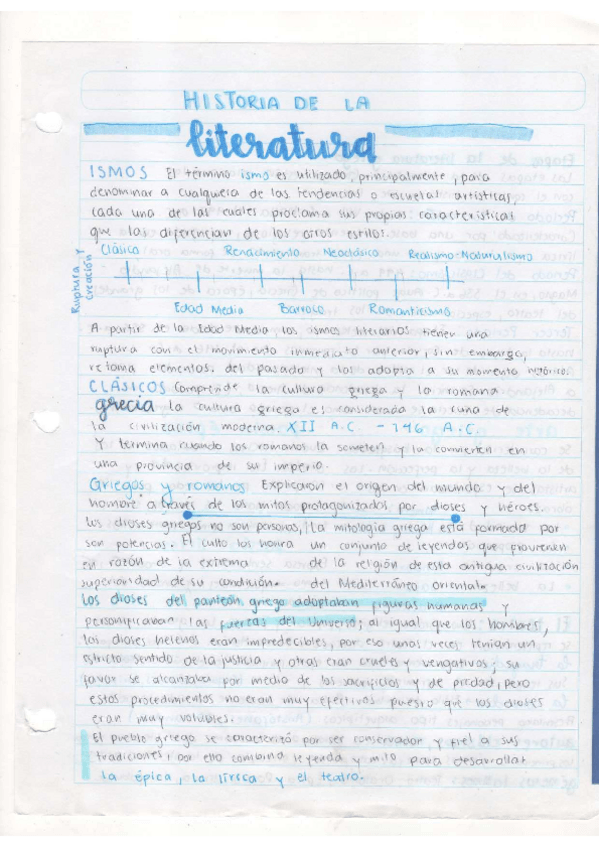 HISTORIA DE LA
literatura
ISMOS El término ismo es utilizado, principalmente, para
denominar a cualquiera de las tendencias o escuelas artísticas,
cada una de las cuales proclama sus propias características
que las diferencian de los otros estilos.
Ruptura y
creación
Clásico Renacimiento Neoclásico Realismo-Naturalismo
Edad Media Barroco Romanticismo
A partir de la Edad Media, los ismos literarios tienen una
ruptura con el movimiento inmediato anterior, sin embargo,
retoma elementos del pasado y los adopta a su momento histórico.
CLÁSICOS Comprende la cultura griega y la romana
grecia la cultura griega es considerada la cuna de
la civilización moderna. XII A.C - 146 A.C.
Y termina cuando los romanos la someten y la convierten en
una provincia de su imperio.
Griegos y romanos Explicaron el origen del mundo y del
hombre a través de los mitos protagonizados por dioses y héroes.
los dioses griegos no son personas,
son potencias. El culto los honra
en razón de la extrema
superioridad de su condición.
la mitología griega está formado por
un conjunto de leyendas que provienen
de la religión de esta antigua civilización
del Mediterráneo oriental.
Los dioses del panteón griego adoptaban figuras humanas y
personificaban las fuerzas del Universo; al igual que los hombres,
los dioses helenos eran impredecibles, por eso unas veces tenían un
estricto sentido de la justicia y otras eran crueles y vengativos; su
favor se alcanzaba por medio de los sacrificios y de piedad, pero
estos procedimientos no eran muy efectivos puesto que los dioses
eran muy volubles.
El pueblo griego se caracterizó por ser conservador y fiel a sus
tradiciones; por ello combina leyenda y mito para desarrollar
la épica, la lírica y el teatro.